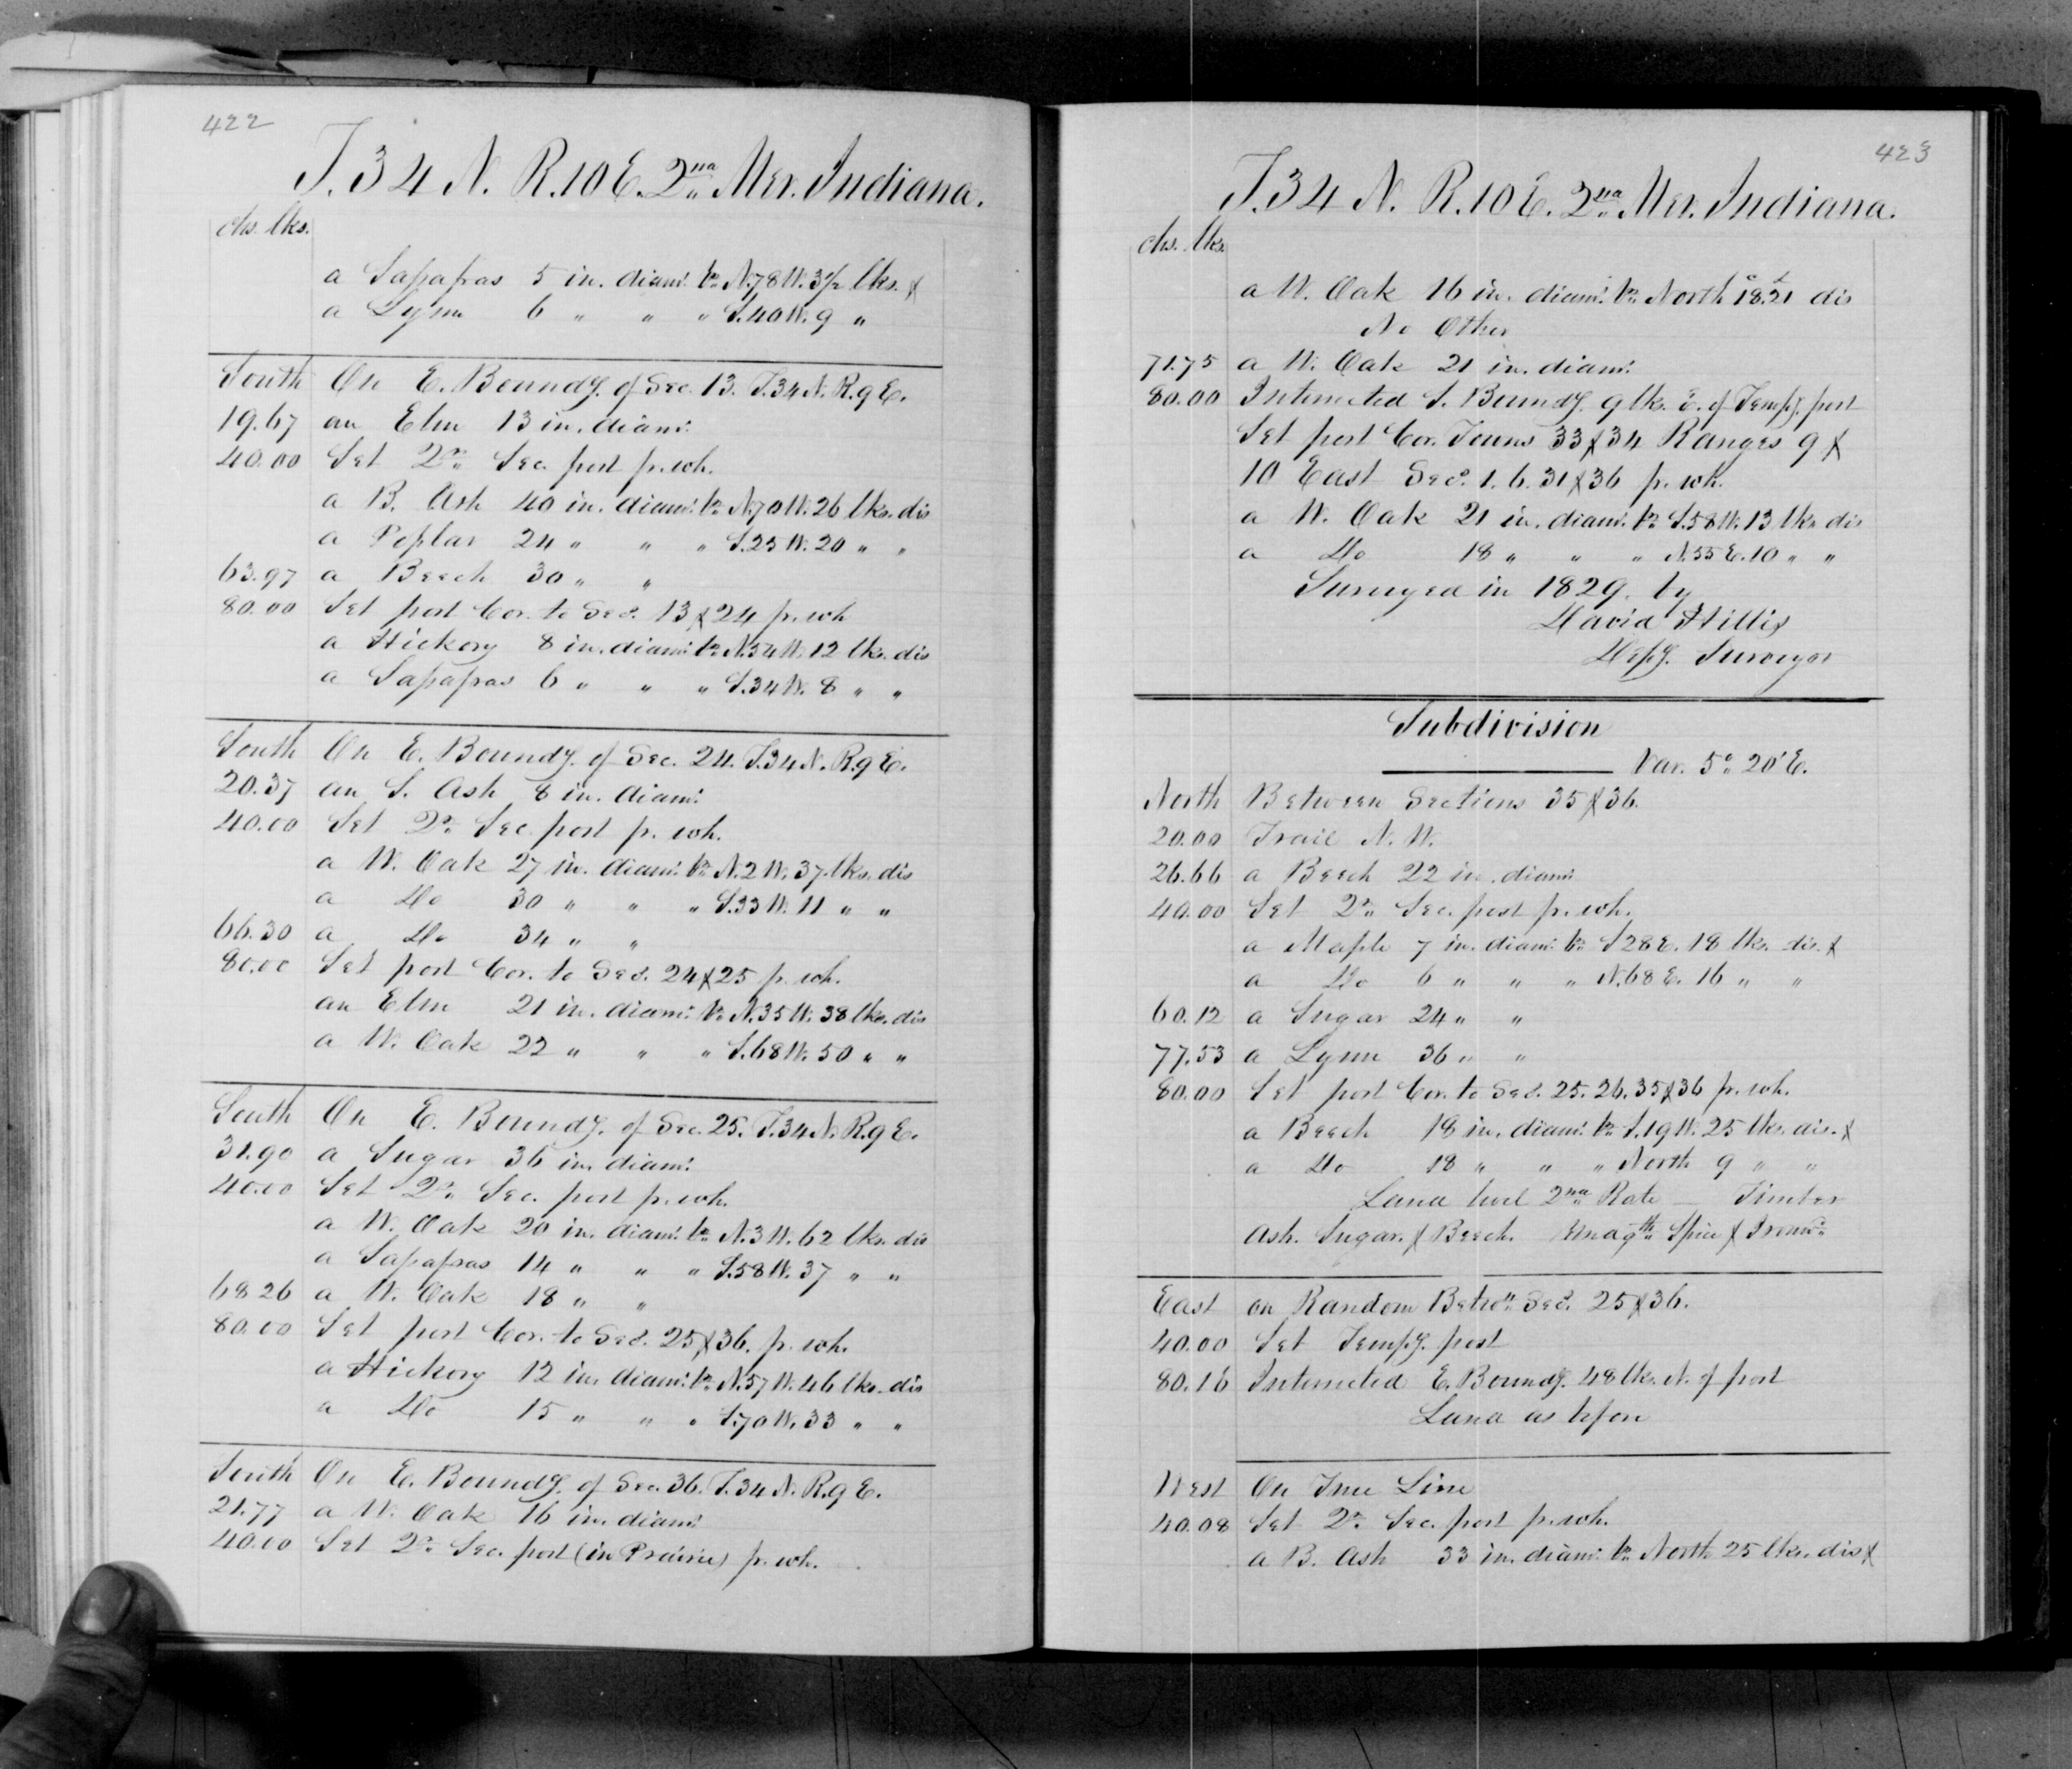 422
T. 34 N. R. 10 E. 2nd Mer. Indiana.
chs. lks.
a Sassafras 5 in. diam: br. N. 78 W. 3½ lks. &
a Lynn 6 " " " S. 40 W. 9 "
South On E. Boundy. of Sec. 13. T. 34 N. R. 9 E.
19.67 an Elm 13 in. diam:
40.00 Set Qr. Sec. post pr. wh.
a B. Ash 40 in. diam: br. N. 70 W. 26 lks. dis
a Poplar 24 " " " S. 25 W. 20 " "
63.97 a Beech 30 " "
80.00 Set post Cor. to Secs. 13 & 24 pr. wh
a Hickory 8 in. diam: br. N. 54 W. 12 lks. dis
a Sassafras 6 " " " S. 34 W. 8 " "
South On E. Boundy. of Sec. 24. T. 34 N. R. 9 E.
20.37 an S. Ash 8 in. diam:
40.00 Set Qr. Sec. post pr. wh.
a W. Oak 27 in. diam: br. N. 2 W. 37 lks. dis
a Do 30 " " " S. 33 W. 11 " "
66.30 a Do 34 " "
80.00 Set post Cor. to Secs. 24 & 25 pr. wh.
an Elm 21 in. diam: br. N. 35 W. 38 lks. dis
a W. Oak 22 " " " S. 68 W. 50 " "
South On E. Boundy. of Sec. 25. T. 34 N. R. 9 E.
31.90 a Sugar 36 in. diam:
40.00 Set Qr. Sec. post pr. wh.
a W. Oak 20 in. diam: br. N. 3 W. 62 lks. dis
a Sassafras 14 " " " S. 58 W. 37 " "
68 26 a W. Oak 18 " "
80.00 Set post Cor. to Secs. 25 & 36. pr. wh.
a Hickory 12 in. diam: br. N. 57 W. 46 lks. dis
a Do 15 " " " S. 70 W. 33 " "
South On E. Boundy. of Sec. 36. T. 34 N. R. 9 E.
21.77 a W. Oak 16 in. diam:
40.00 Set Qr. Sec. post (in Prairie) pr. wh.
423
T. 34 N. R. 10 E. 2nd Mer. Indiana.
chs. lks.
a W. Oak 16 in. diam: br. North 18.21 dis
No Other
71.75 a W. Oak 21 in. diam:
80.00 Intersected S. Boundy. 9 lks. E. of Tempy. post
Set post Cor. Towns 33 & 34 Ranges 9 &
10 East Secs. 1. 6. 31 & 36 pr. wh.
a W. Oak 21 in. diam: br. S. 58 W. 13 lks dis
a Do 18 " " " N. 55 E. 10 " "
Surveyed in 1829. by
David Hillis
Depy. Surveyor
Subdivision
Var. 5° 20' E.
North Between Sections 35 & 36.
20.00 Trail N. W.
26.66 a Beech 22 in. diam:
40.00 Set Qr. Sec. post pr. wh.
a Maple 7 in. diam: br. S 28 E. 18 lks. dis. &
a Do 6 " " " N. 68 E. 16 " "
60.12 a Sugar 24 " "
77.53 a Lynn 36 " "
80.00 Set post Cor. to Secs. 25. 26. 35 & 36 pr. wh.
a Beech 18 in. diam: br. S. 19 W. 25 lks. dis. &
a Do 18 " " " North 9 " "
Land level 2nd Rate — Timber
Ash. Sugar. & Beech. Undgth Spice & Ironwd.
East on Random Betwn. Secs. 25 & 36.
40.00 Set Tempy. post
80.16 Intersected E. Boundy. 48 lks. N. of post
Land as before
West On True Line
40.08 Set Qr. Sec. post pr. wh.
a B. Ash 33 in. diam: br. North 25 lks. dis &